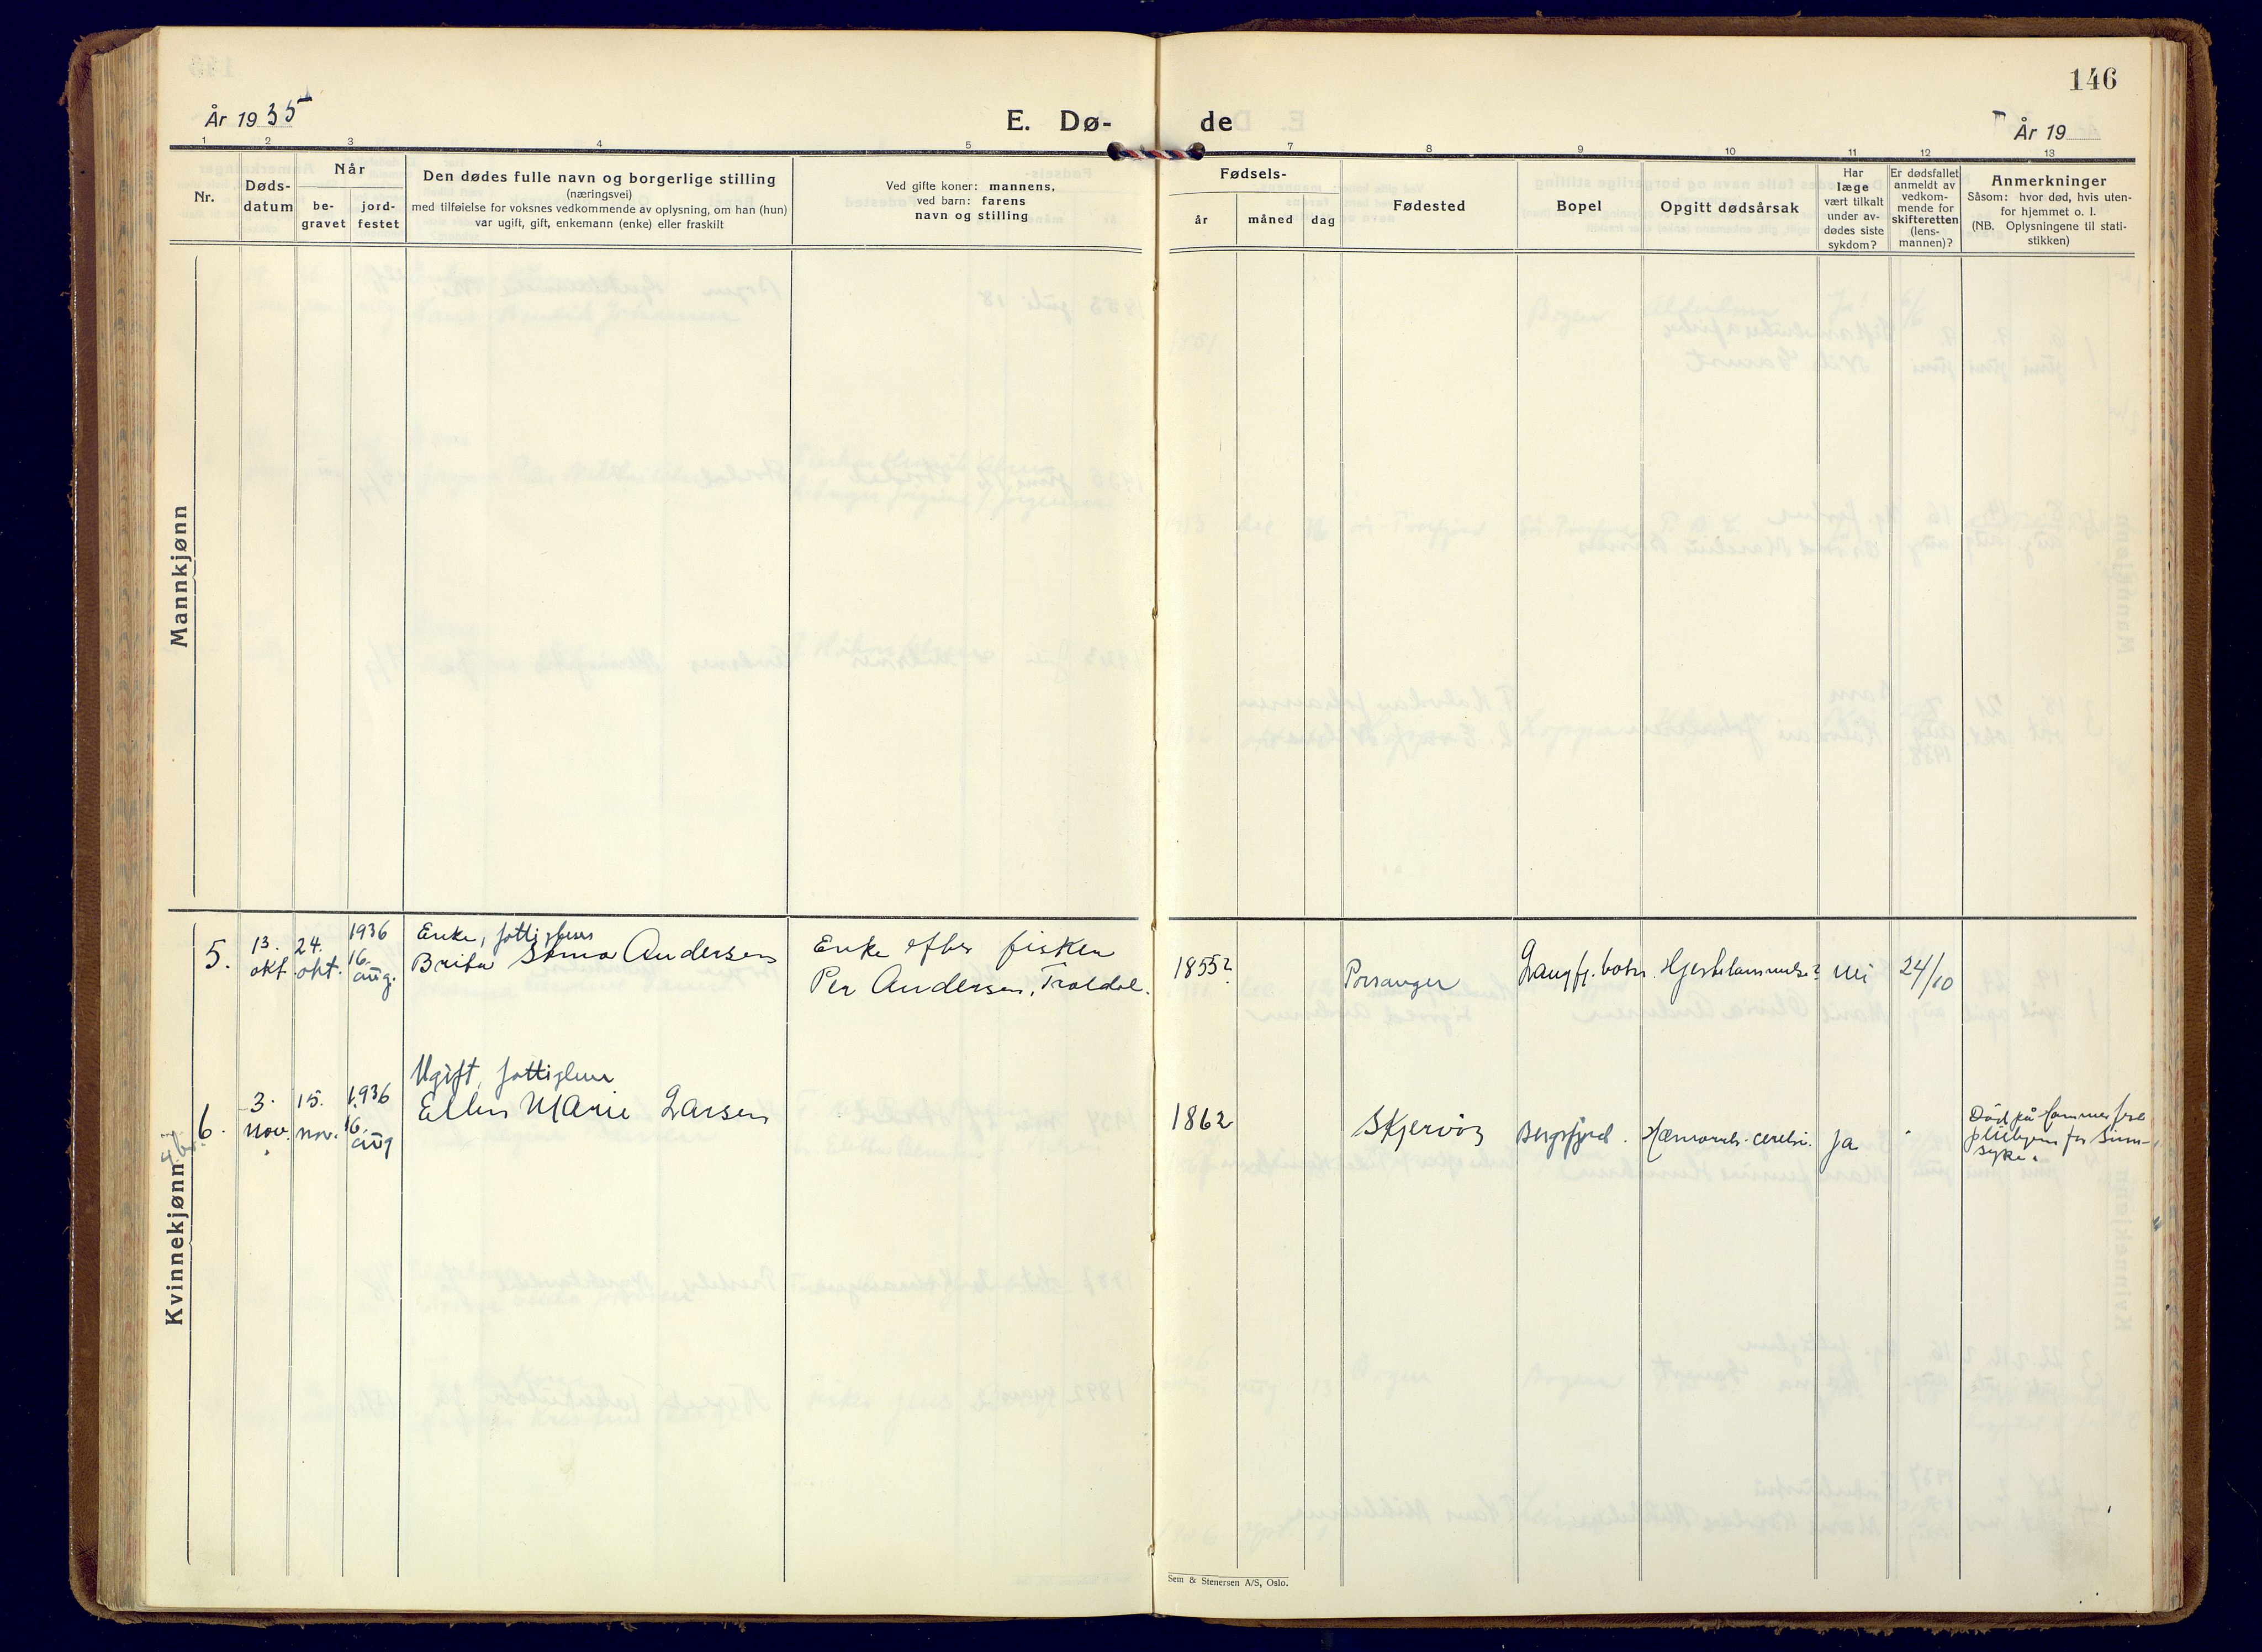 146
År 1935
E. Dø-
de
År 19
1 2 3 4 5
7 8 9 10 11 12 13
Nr.
Døds-
datum
Når
be-
gravet
jord-
festet
Den dødes fulle navn og borgerlige stilling
(næringsvei)
med tilføielse for voksnes vedkommende av oplysning, om han (hun)
var ugift, gift, enkemann (enke) eller fraskilt
Ved gifte koner: mannens,
ved barn: farens
navn og stilling
Fødsels-
år
måned
dag
Fødested
Bopel
Opgitt dødsårsak
Har
læge
vært tilkalt
under av-
dødes siste
sykdom?
Er dødsfallet
anmeldt av
vedkom-
mende for
skifteretten
(lens-
mannen)?
Anmerkninger
Såsom: hvor død, hvis uten-
for hjemmet o. l.
(NB. Oplysningene til stati-
stikken)
Mannkjønn
Kvinnekjønn
5.
13.
okt.
24.
okt.
1936
16.
aug.
Enke, fattiglem
Brita Andersen
Enke efter fisker
Per Andersen, Troldal.
1855?
Porsanger
Langfj.botn.
Hjertelammelse?
nei
24/10
6.
3.
nov.
15.
nov.
1936
16.
aug
Ugift, fattiglem
Ellen Marie Larsen
1862
Skjervöy
Bergsfjord.
Hæmorrh. cerebri.
ja
Död på Hammerfest
pleiehjem for sinn-
syke.
Sem & Stenersen A/S, Oslo.